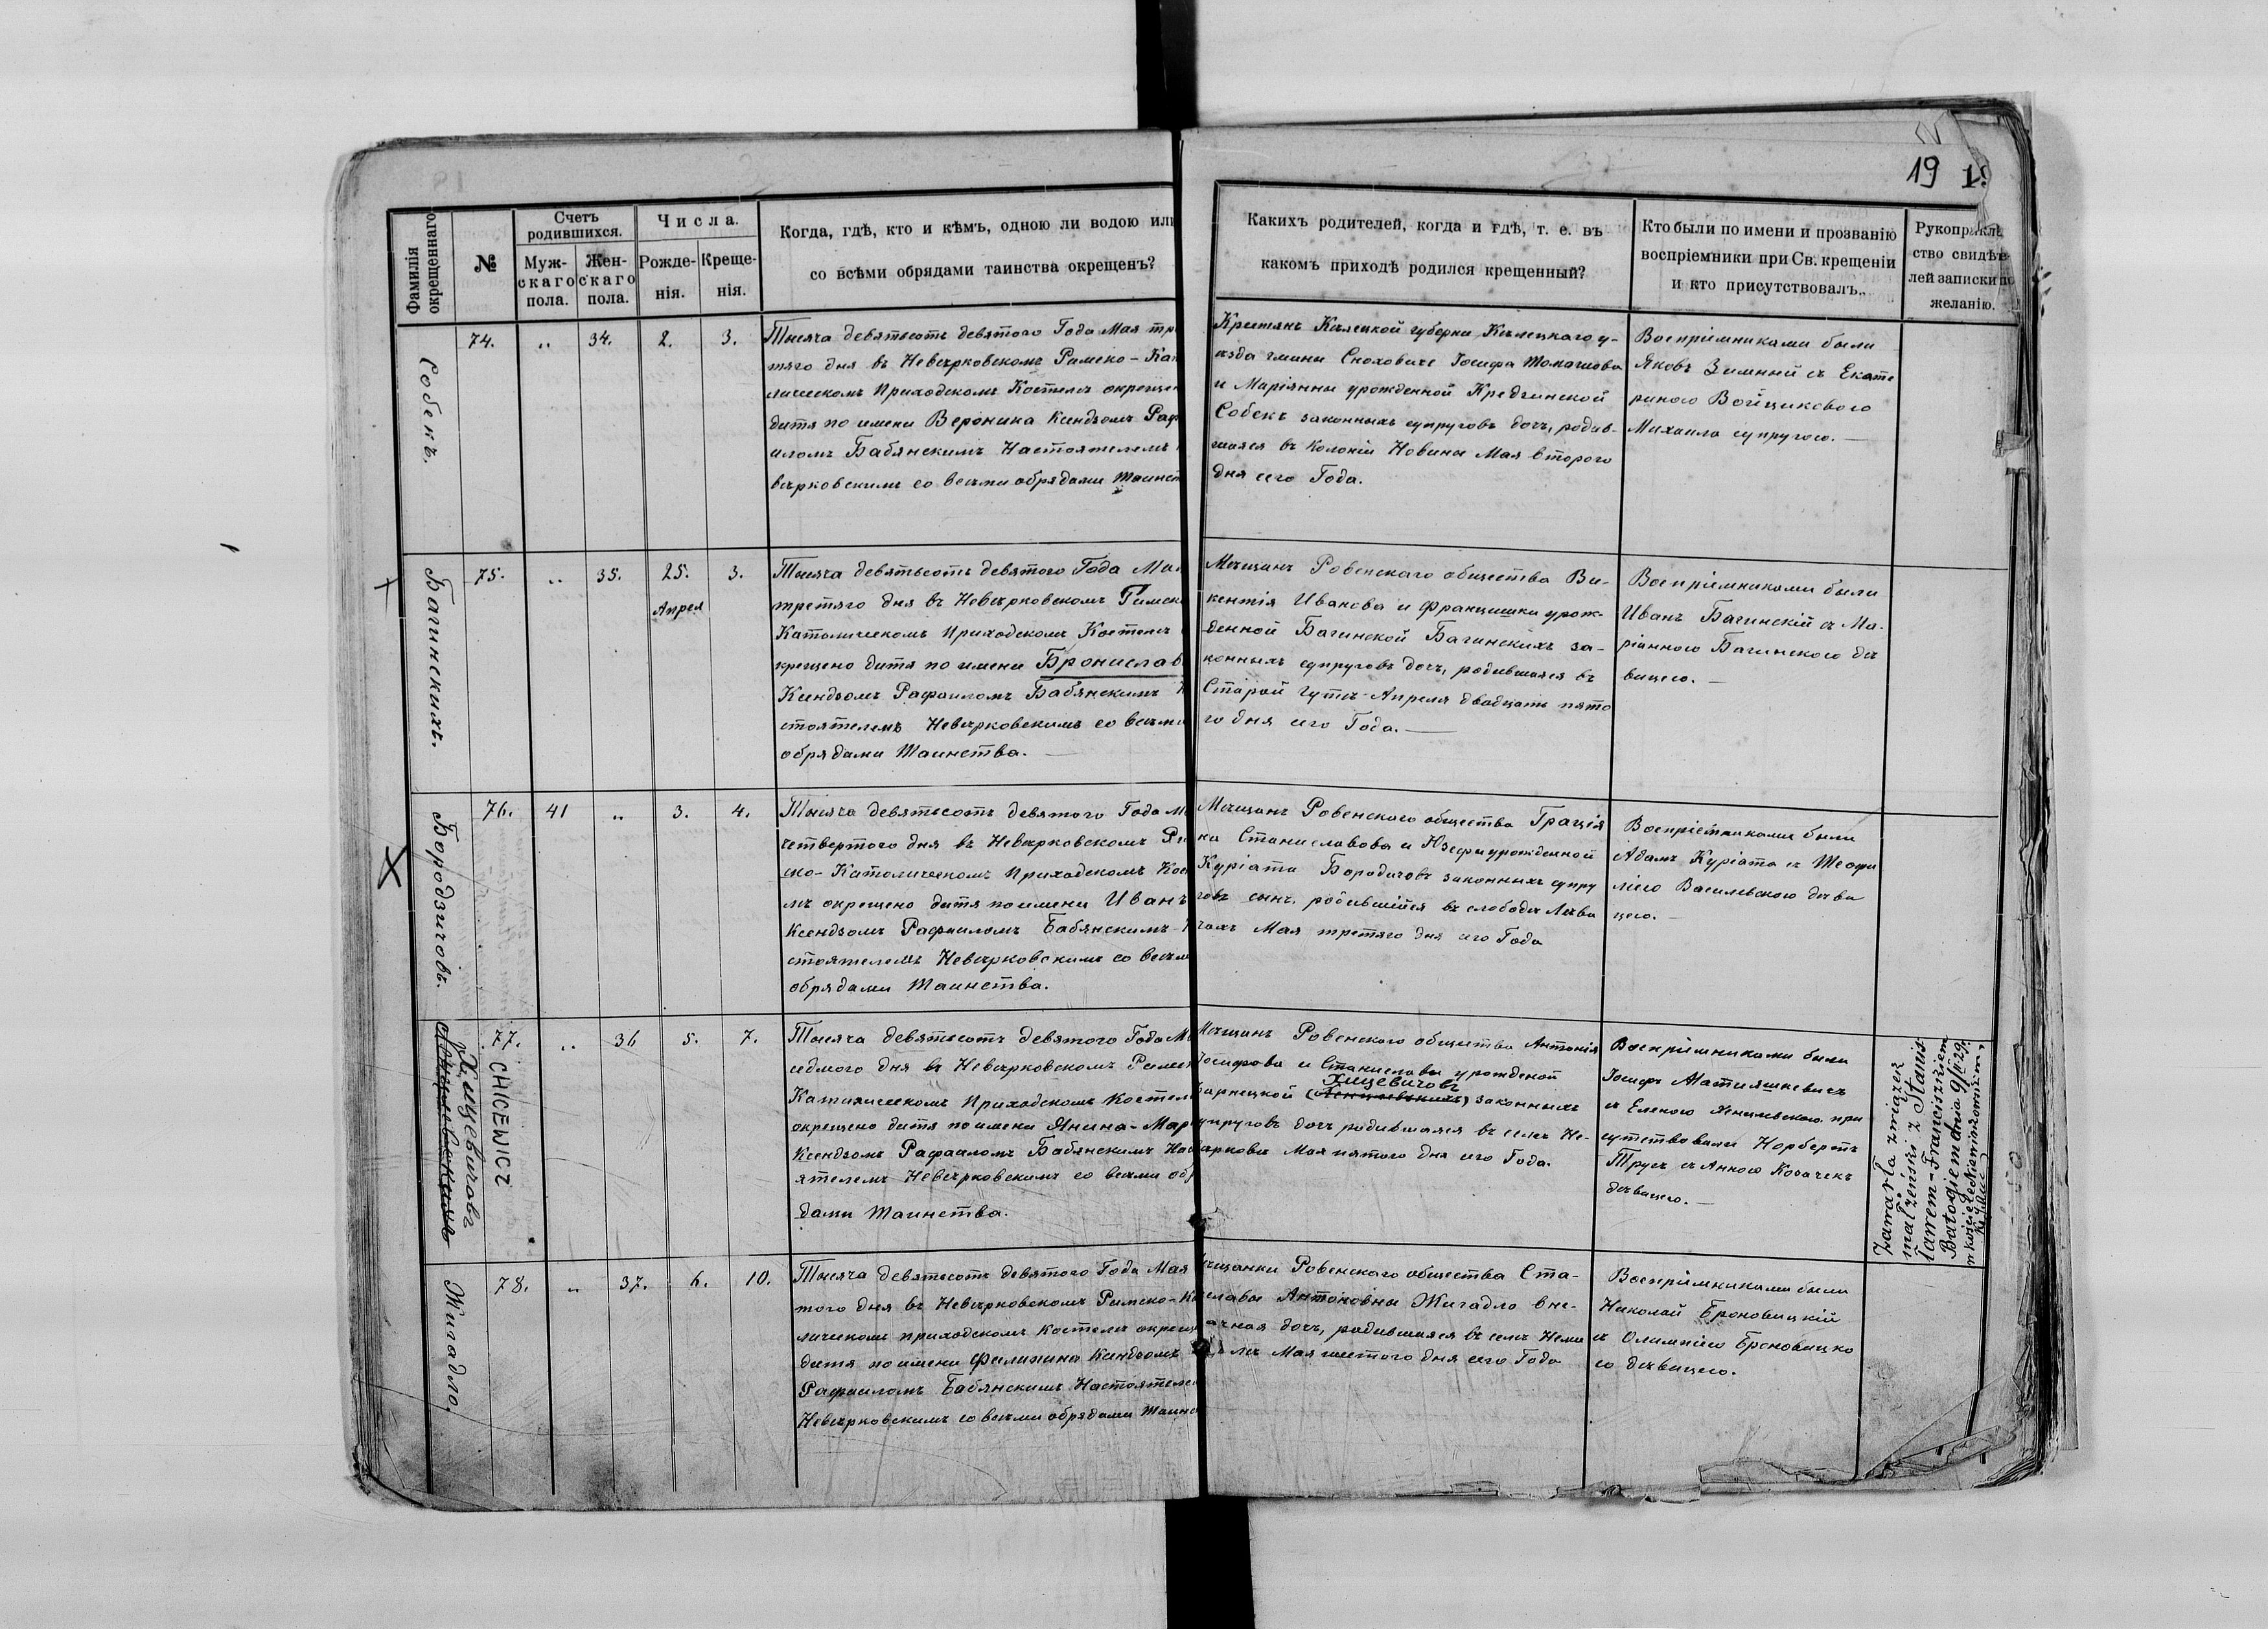 19
Фамилія окрещеннаго
№
Счетъ родившихся.
Муж-скаго пола.
Жен-скаго пола.
Числа.
Рожде-нія.
Креще-нія.
Когда, гдѣ, кто и кѣмъ, одною ли водою или
со всѣми обрядами таинства окрещенъ?
Какихъ родителей, когда и гдѣ, т. е. въ
какомъ приходѣ родился крещенный?
Кто были по имени и прозванію
воспріемники при Св. крещеніи
и кто присутствовалъ.
Рукоприклад
ство свидѣте
лей записки по
желанію.
Собекъ.
74. „ 34. 2. 3.
Тысяча девятьсотъ девятого Года Мая тре
тяго дня въ Невѣрковскомъ Римско-Кат
лическомъ Приходскомъ Костелѣ окрещен
дитя по имени Вероника Ксендзомъ Раф
иломъ Бабянскимъ Настоятелемъ
вѣрковскимъ со всѣми обрядами Таинст
Крестянъ Кѣлецкой губерни Кѣлецкаго у-
ѣзда гмины Сноховице Іосифа Томашова
и Маріянны урожденной Кредзинской
Собекъ законныхъ супруговъ дочь, родив-
шаяся въ Колоніи Новина Мая второго
дня сего Года.
Воспріемниками были
Яковъ Зимный съ Екате
риною Войциковою
Михаила супругою.—
Багинскихъ.
75. „ 35. 25. 3.
Апрел
Тысяча девятьсотъ девятого Года Мая
третяго дня въ Невѣрковскомъ Римско
Католическомъ Приходскомъ Костелѣ
крещено дитя по имени Бронислав
Ксендзомъ Рафаиломъ Бабянскимъ Н
стоятелемъ Невѣрковскимъ со всѣми
обрядами Таинства.—
Мѣщанъ Ровенскаго общества Ви-
кентія Иванова и Францишки урож-
денной Багинской Багинскихъ за-
конныхъ супруговъ дочь, родившаяся въ
Старой Гутѣ Апреля двадцать пято
го дня сего Года.—
Воспріемниками были
Иванъ Багинскій съ Ма-
ріанною Багинскою дѣ
вицею.—
Бородзичовъ.
76. 41 „ 3. 4.
Тысяча девятьсотъ девятого Года М
четвертого дня въ Невѣрковскомъ Ри
ско-Католическомъ Приходскомъ Кос
лѣ окрещено дитя по имени Иванъ
Ксендзомъ Рафаиломъ Бабянскимъ
стоятелемъ Невѣрковскимъ со всѣми
обрядами Таинства.
Мѣщанъ Ровенского общества Грація
на Станиславова и Юзефы урожденной
Куріата Бородичовъ законныхъ супру
говъ сынъ, родившійся въ слободѣ Лева
чахъ Мая третяго дня сего Года
Воспріемниками были
Адамъ Куріата съ Теофи
лією Василевскою дѣви
цею.—
Хицевичовъ
CHICEWICZ
77. „ 36 5. 7.
Тысяча девятьсотъ девятого Года М
седмого дня въ Невѣрковскомъ Римск
Католическомъ Приходскомъ Костел
окрещено дитя по имени Янина-Мар
Ксендзомъ Рафаиломъ Бабянскимъ Нас
ятелемъ Невѣрковскимъ со всѣми обр
дами Таинства.
Мѣщанъ Ровенского общества Антонія
Іосифова и Станиславы урожденой
Хицевичовъ
Барнецкой законныхъ
супруговъ дочь родившаяся въ селѣ Не-
вѣрковѣ Мая пятого дня сего Года.
Воспріемниками были
Іосифъ Матияшкевичъ
съ Еленою при
сутствовали Норбертъ
Трусъ съ Анною Козачекъ
дѣвицею.—
Zawarła związek
małżeński z Stanis-
ławem-Franciszkiem
Batogiem dnia 9/II 29 r.
w kościele
Жигадло.
78. „ 37. 6. 10.
Тысяча девятьсотъ девятого Года Мая
того дня въ Невѣрковскомъ Римско-К
лическомъ приходскомъ Костелѣ окрещ
дитя по имени Филипина Ксендзомъ
Рафаиломъ Бабянскимъ Настоятеле
Невѣрковскимъ со всѣми обрядами Таинс
ѣщанки Ровенскаго общества Ста-
славы Антоновны Жигадло вне-
ачная дочь, родившаяся въ селѣ Неми
лѣ Мая шестого дня сего Года
Воспріемниками были
Николай Броновицкій
съ Олимпією Броновицко
ю дѣвицею.